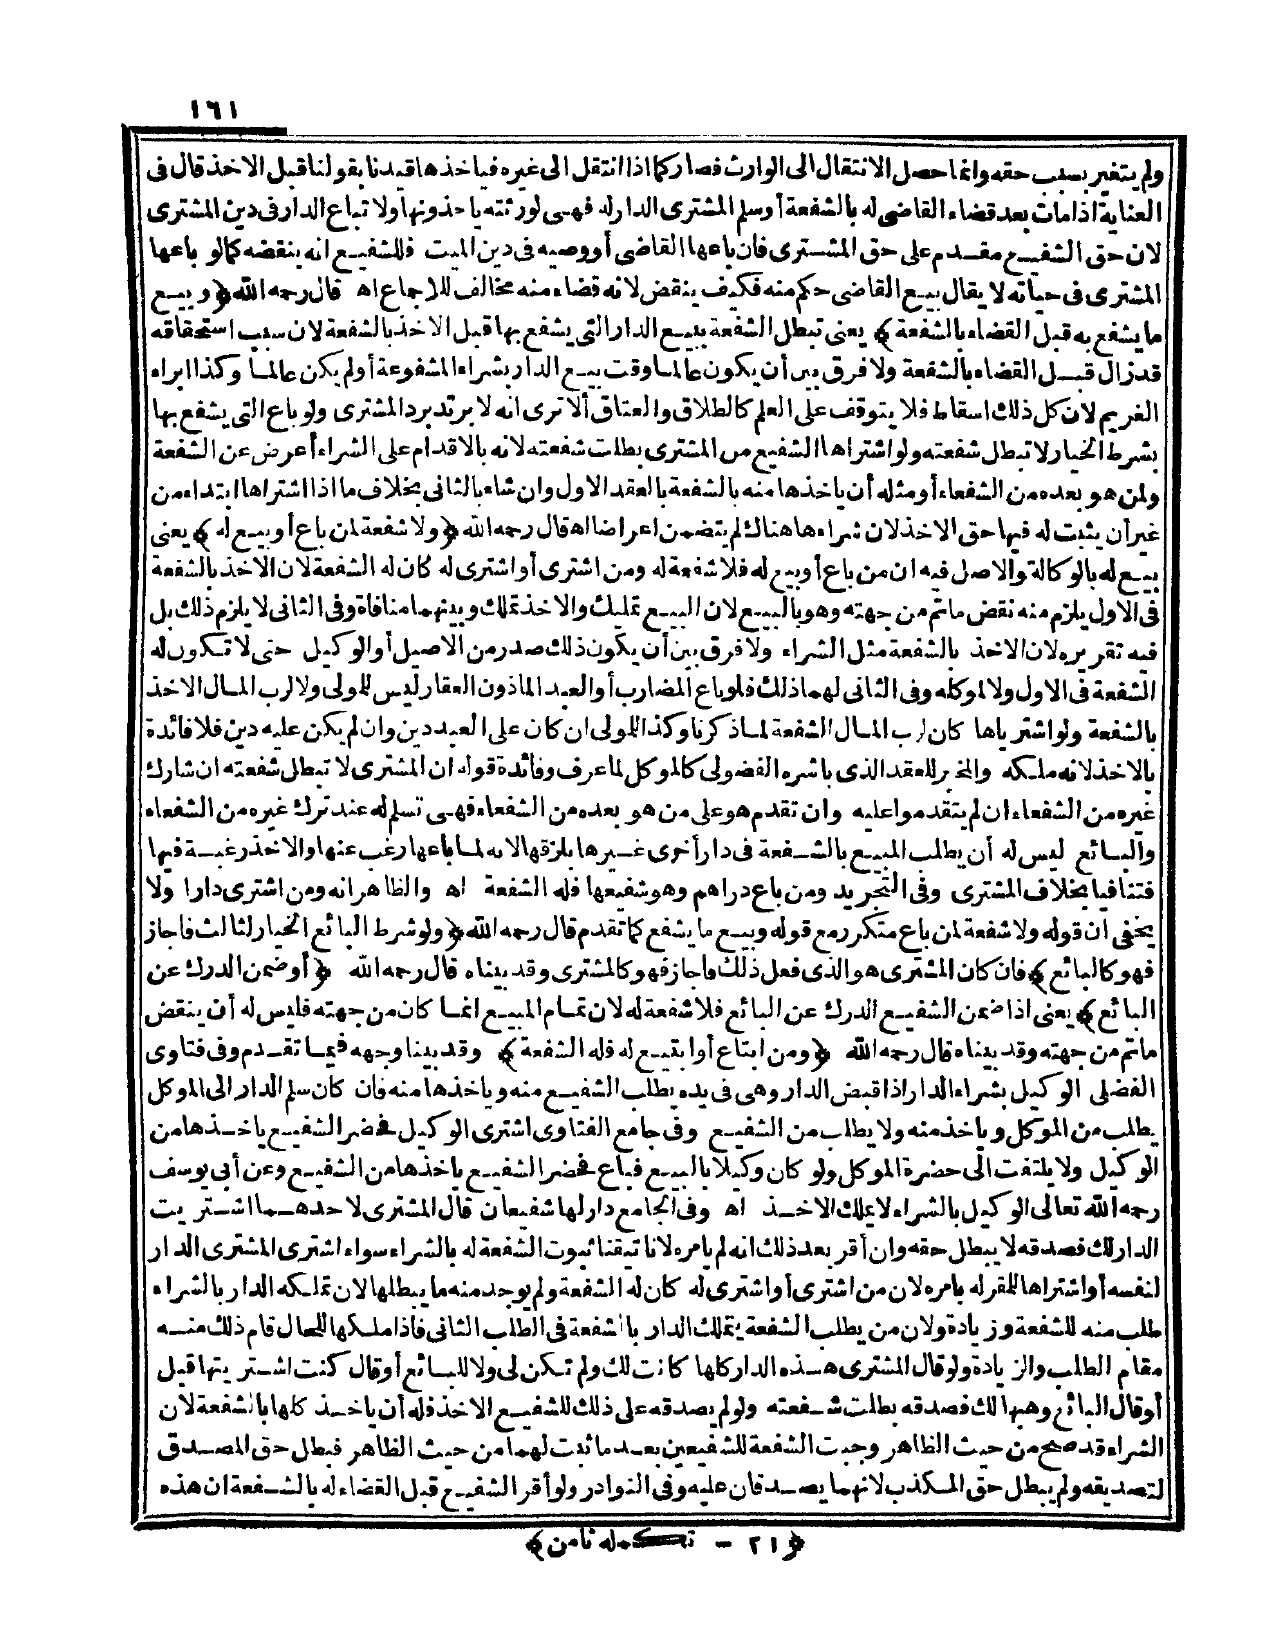 ١٦١
ولم يتغير بسبب حقه وانما حصل الانتقال الى الوارث فصار كما اذا انتقل الى غيره فياخذها قيدنا بقولنا قبل الاخذ قال فى
العناية اذا مات بعد قضاء القاضى له بالشفعة أو سلم المشترى الدار له فهى لورثته ياخذونها ولا تباع الدار فى دين المشترى
لان حق الشفيع مقدم على حق المشترى فان باعها القاضى أو وصيه فى دين الميت فللشفيع انه ينقضه كما لو باعها
المشترى فى حياته لا يقال بيع القاضى حكم منه فكيف ينقض لانه قضاء منه مخالف للاجماع اه قال رحمه الله ﴿وبيع
ما يشفع به قبل القضاء بالشفعة﴾ يعنى تبطل الشفعة ببيع الدار التى يشفع بها قبل الاخذ بالشفعة لان سبب استحقاقه
قد زال قبل القضاء بالشفعة ولا فرق بين أن يكون عالما وقت بيع الدار بشراء المشفوعة أو لم يكن عالما وكذا ابراء
الغريم لان كل ذلك اسقاط فلا يتوقف على العلم كالطلاق والعتاق ألا ترى انه لا يرتد برد المشترى ولو باع التى يشفع بها
بشرط الخيار لا تبطل شفعته ولو اشتراها الشفيع من المشترى بطلت شفعته لانه بالاقدام على الشراء أعرض عن الشفعة
ولمن هو بعده من الشفعاء أو مثله أن ياخذها منه بالشفعة بالعقد الاول وان شاء بالثانى بخلاف ما اذا اشتراها ابتداء من
غير أن يثبت له فيها حق الاخذ لان شراءها هناك لم يتضمن اعراضا اه قال رحمه الله ﴿ولا شفعة لمن باع أو بيع له﴾ يعنى
بيع له بالوكالة والاصل فيه ان من باع أو بيع له فلا شفعة له ومن اشترى أو اشترى له كان له الشفعة لان الاخذ بالشفعة
فى الاول يلزم منه نقض ما تم من جهته وهو بالبيع لان البيع تمليك والاخذ تملك وبينهما منافاة وفى الثانى لا يلزم ذلك بل
فيه تقريره لان الاخذ بالشفعة مثل الشراء ولا فرق بين أن يكون ذلك صدر من الاصيل أو الوكيل حتى لا تكون له
الشفعة فى الاول ولا لموكله وفى الثانى لهما ذلك فلو باع المضارب أو العبد الماذون العقار ليس للمولى ولا لرب المال الاخذ
بالشفعة ولو اشترياها كان لرب المال الشفعة لما ذكرنا وكذا للمولى ان كان على العبد دين وان لم يكن عليه دين فلا فائدة
بالاخذ لانه ملكه والمخبر للعقد الذى باشره الفضولى كالموكل لما عرف وفائدة قوله ان المشترى لا تبطل شفعته ان شارك
غيره من الشفعاء ان لم يتقدموا عليه وان تقدم هو على من هو بعده من الشفعاء فهى تسلم له عند ترك غيره من الشفعاء
والبائع ليس له أن يطلب المبيع بالشفعة فى دار أخرى غيرها بلزقها لانه لما باعها رغب عنها والاخذ رغبة فيها
فتنافيا بخلاف المشترى وفى التجريد ومن باع دراهم وهو شفيعها فله الشفعة اه والظاهر انه ومن اشترى دارا ولا
يخفى ان قوله ولا شفعة لمن باع متكرر مع قوله وبيع ما يشفع كما تقدم قال رحمه الله ﴿ولو شرط البائع الخيار لثالث فاجاز
فهو كالبائع﴾ فان كان المشترى هو الذى فعل ذلك فاجاز فهو كالمشترى وقد بيناه قال رحمه الله ﴿أو ضمن الدرك عن
البائع﴾ يعنى اذا ضمن الشفيع الدرك عن البائع فلا شفعة له لان تمام المبيع انما كان من جهته فليس له أن ينقض
ما تم من جهته وقد بيناه قال رحمه الله ﴿ومن ابتاع أو ابتيع له فله الشفعة﴾ وقد بينا وجهه فيما تقدم وفى فتاوى
الفضلى الوكيل بشراء الدار اذا قبض الدار وهى فى يده يطلب الشفيع منه وياخذها منه فان كان سلم الدار الى الموكل
يطلب من الموكل وياخذ منه ولا يطلب من الشفيع وفى جامع الفتاوى اشترى الوكيل فحضر الشفيع ياخذها من
الوكيل ولا يلتفت الى حضرة الموكل ولو كان وكيلا بالبيع فباع فحضر الشفيع ياخذها من الشفيع وعن أبى يوسف
رحمه الله تعالى الوكيل بالشراء لا يملك الاخذ اه وفى الجامع دار لها شفيعان قال المشترى لاحدهما اشتريت
الدار لك فصدقه لا يبطل حقه وان أقر بعد ذلك انه لم يامره لانا تيقنا ثبوت الشفعة له بالشراء سواء اشترى المشترى الدار
لنفسه أو اشتراها للمقر له بامره لان من اشترى أو اشترى له كان له الشفعة ولم يوجد منه ما يبطلها لان تملكه الدار بالشراء
طلب منه للشفعة وزيادة ولان من يطلب الشفعة يتملك الدار بالشفعة فى الطلب الثانى فاذا ملكها للحال قام ذلك منه
مقام الطلب والزيادة ولو قال المشترى هذه الدار كلها كانت لك ولم تكن لى ولا للبائع أو قال كنت اشتريتها قبل
أو قال البائع وهبها لك فصدقه بطلت شفعته ولو لم يصدقه على ذلك للشفيع الاخذ فله أن ياخذ كلها بالشفعة لان
الشراء قد صح من حيث الظاهر وجبت الشفعة للشفيعين بعد ما ثبت لهما من حيث الظاهر فبطل حق المصدق
لتصديقه ولم يبطل حق المكذب لانهما يصدقان عليه وفى النوادر ولو أقر الشفيع قبل القضاء له بالشفعة ان هذه
﴿٢١ - تكمله ثامن﴾